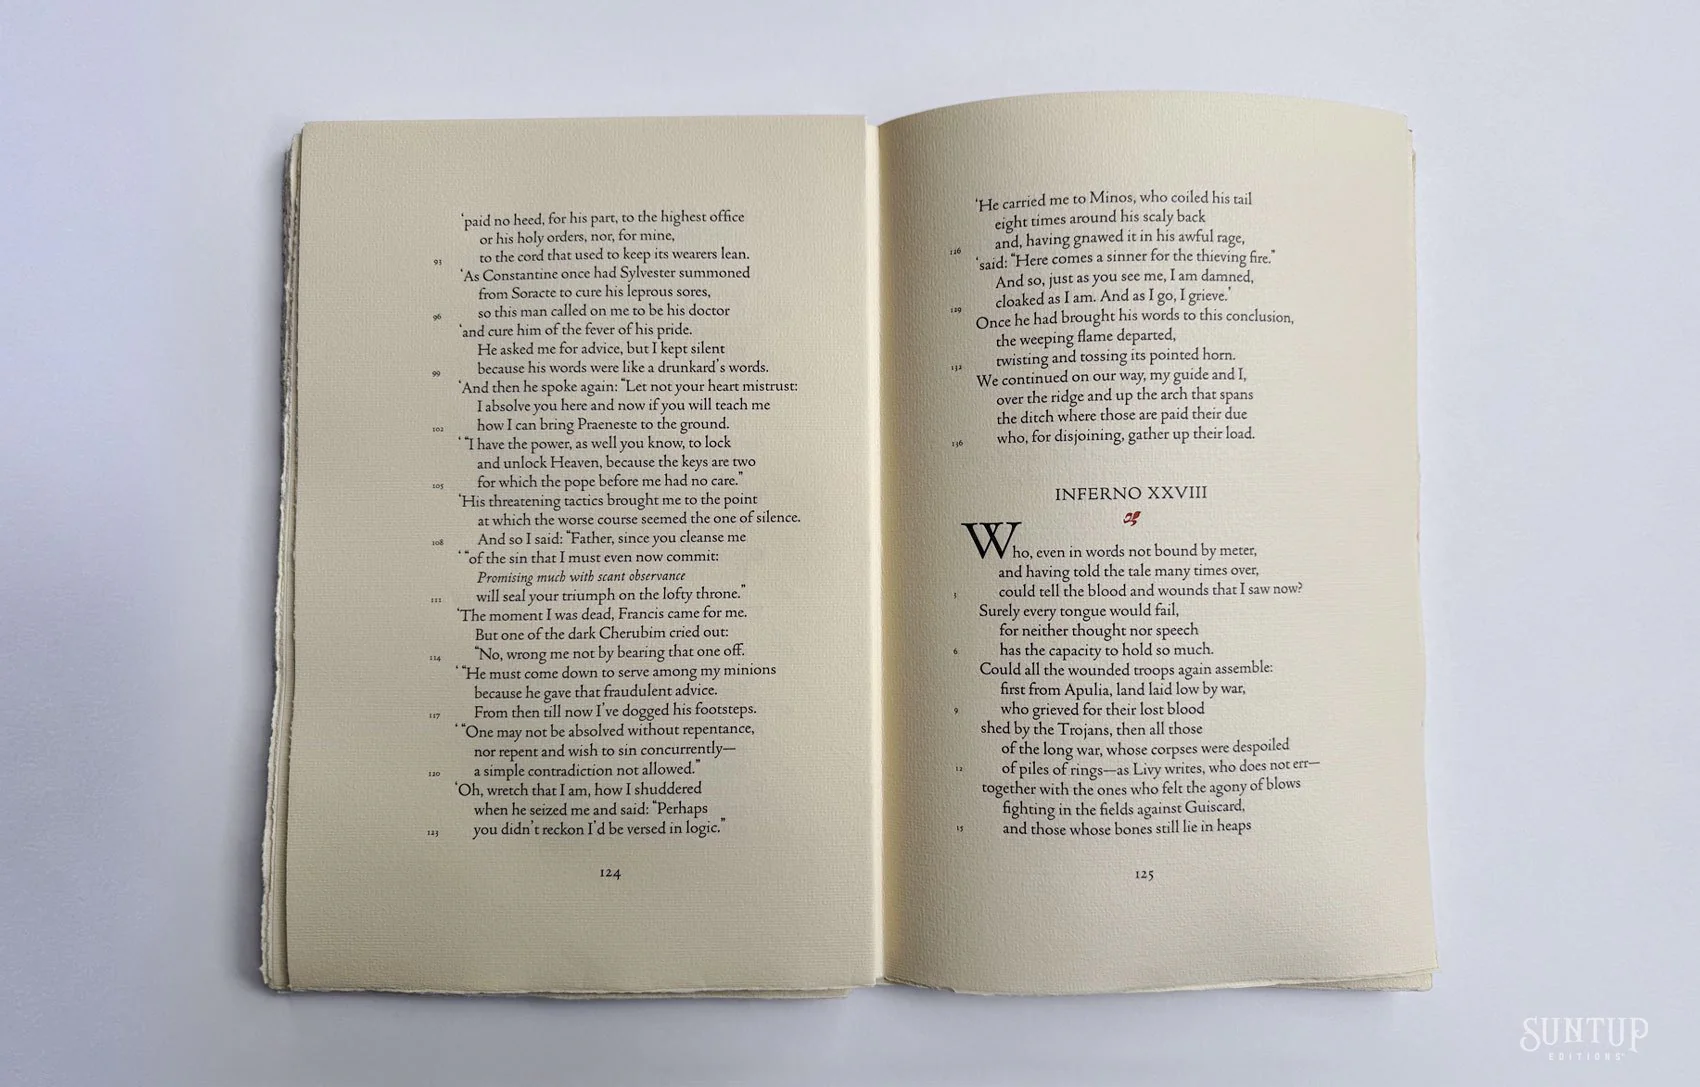 ‘paid no heed, for his part, to the highest office
or his holy orders, nor, for mine,
93 to the cord that used to keep its wearers lean.
‘As Constantine once had Sylvester summoned
from Soracte to cure his leprous sores,
96 so this man called on me to be his doctor
‘and cure him of the fever of his pride.
He asked me for advice, but I kept silent
99 because his words were like a drunkard’s words.
‘And then he spoke again: “Let not your heart mistrust:
I absolve you here and now if you will teach me
102 how I can bring Praeneste to the ground.
‘ “I have the power, as well you know, to lock
and unlock Heaven, because the keys are two
105 for which the pope before me had no care.”
‘His threatening tactics brought me to the point
at which the worse course seemed the one of silence.
108 And so I said: “Father, since you cleanse me
‘ “of the sin that I must even now commit:
Promising much with scant observance
111 will seal your triumph on the lofty throne.”
‘The moment I was dead, Francis came for me.
But one of the dark Cherubim cried out:
114 “No, wrong me not by bearing that one off.
‘ “He must come down to serve among my minions
because he gave that fraudulent advice.
117 From then till now I’ve dogged his footsteps.
‘ “One may not be absolved without repentance,
nor repent and wish to sin concurrently—
120 a simple contradiction not allowed.”
‘Oh, wretch that I am, how I shuddered
when he seized me and said: “Perhaps
123 you didn’t reckon I’d be versed in logic.”
124
‘He carried me to Minos, who coiled his tail
eight times around his scaly back
126 and, having gnawed it in his awful rage,
‘said: “Here comes a sinner for the thieving fire.”
And so, just as you see me, I am damned,
129 cloaked as I am. And as I go, I grieve.’
Once he had brought his words to this conclusion,
the weeping flame departed,
132 twisting and tossing its pointed horn.
We continued on our way, my guide and I,
over the ridge and up the arch that spans
the ditch where those are paid their due
136 who, for disjoining, gather up their load.
INFERNO XXVIII
Who, even in words not bound by meter,
and having told the tale many times over,
3 could tell the blood and wounds that I saw now?
Surely every tongue would fail,
for neither thought nor speech
6 has the capacity to hold so much.
Could all the wounded troops again assemble:
first from Apulia, land laid low by war,
9 who grieved for their lost blood
shed by the Trojans, then all those
of the long war, whose corpses were despoiled
12 of piles of rings—as Livy writes, who does not err—
together with the ones who felt the agony of blows
fighting in the fields against Guiscard,
15 and those whose bones still lie in heaps
125
SUNTUP
EDITIONS